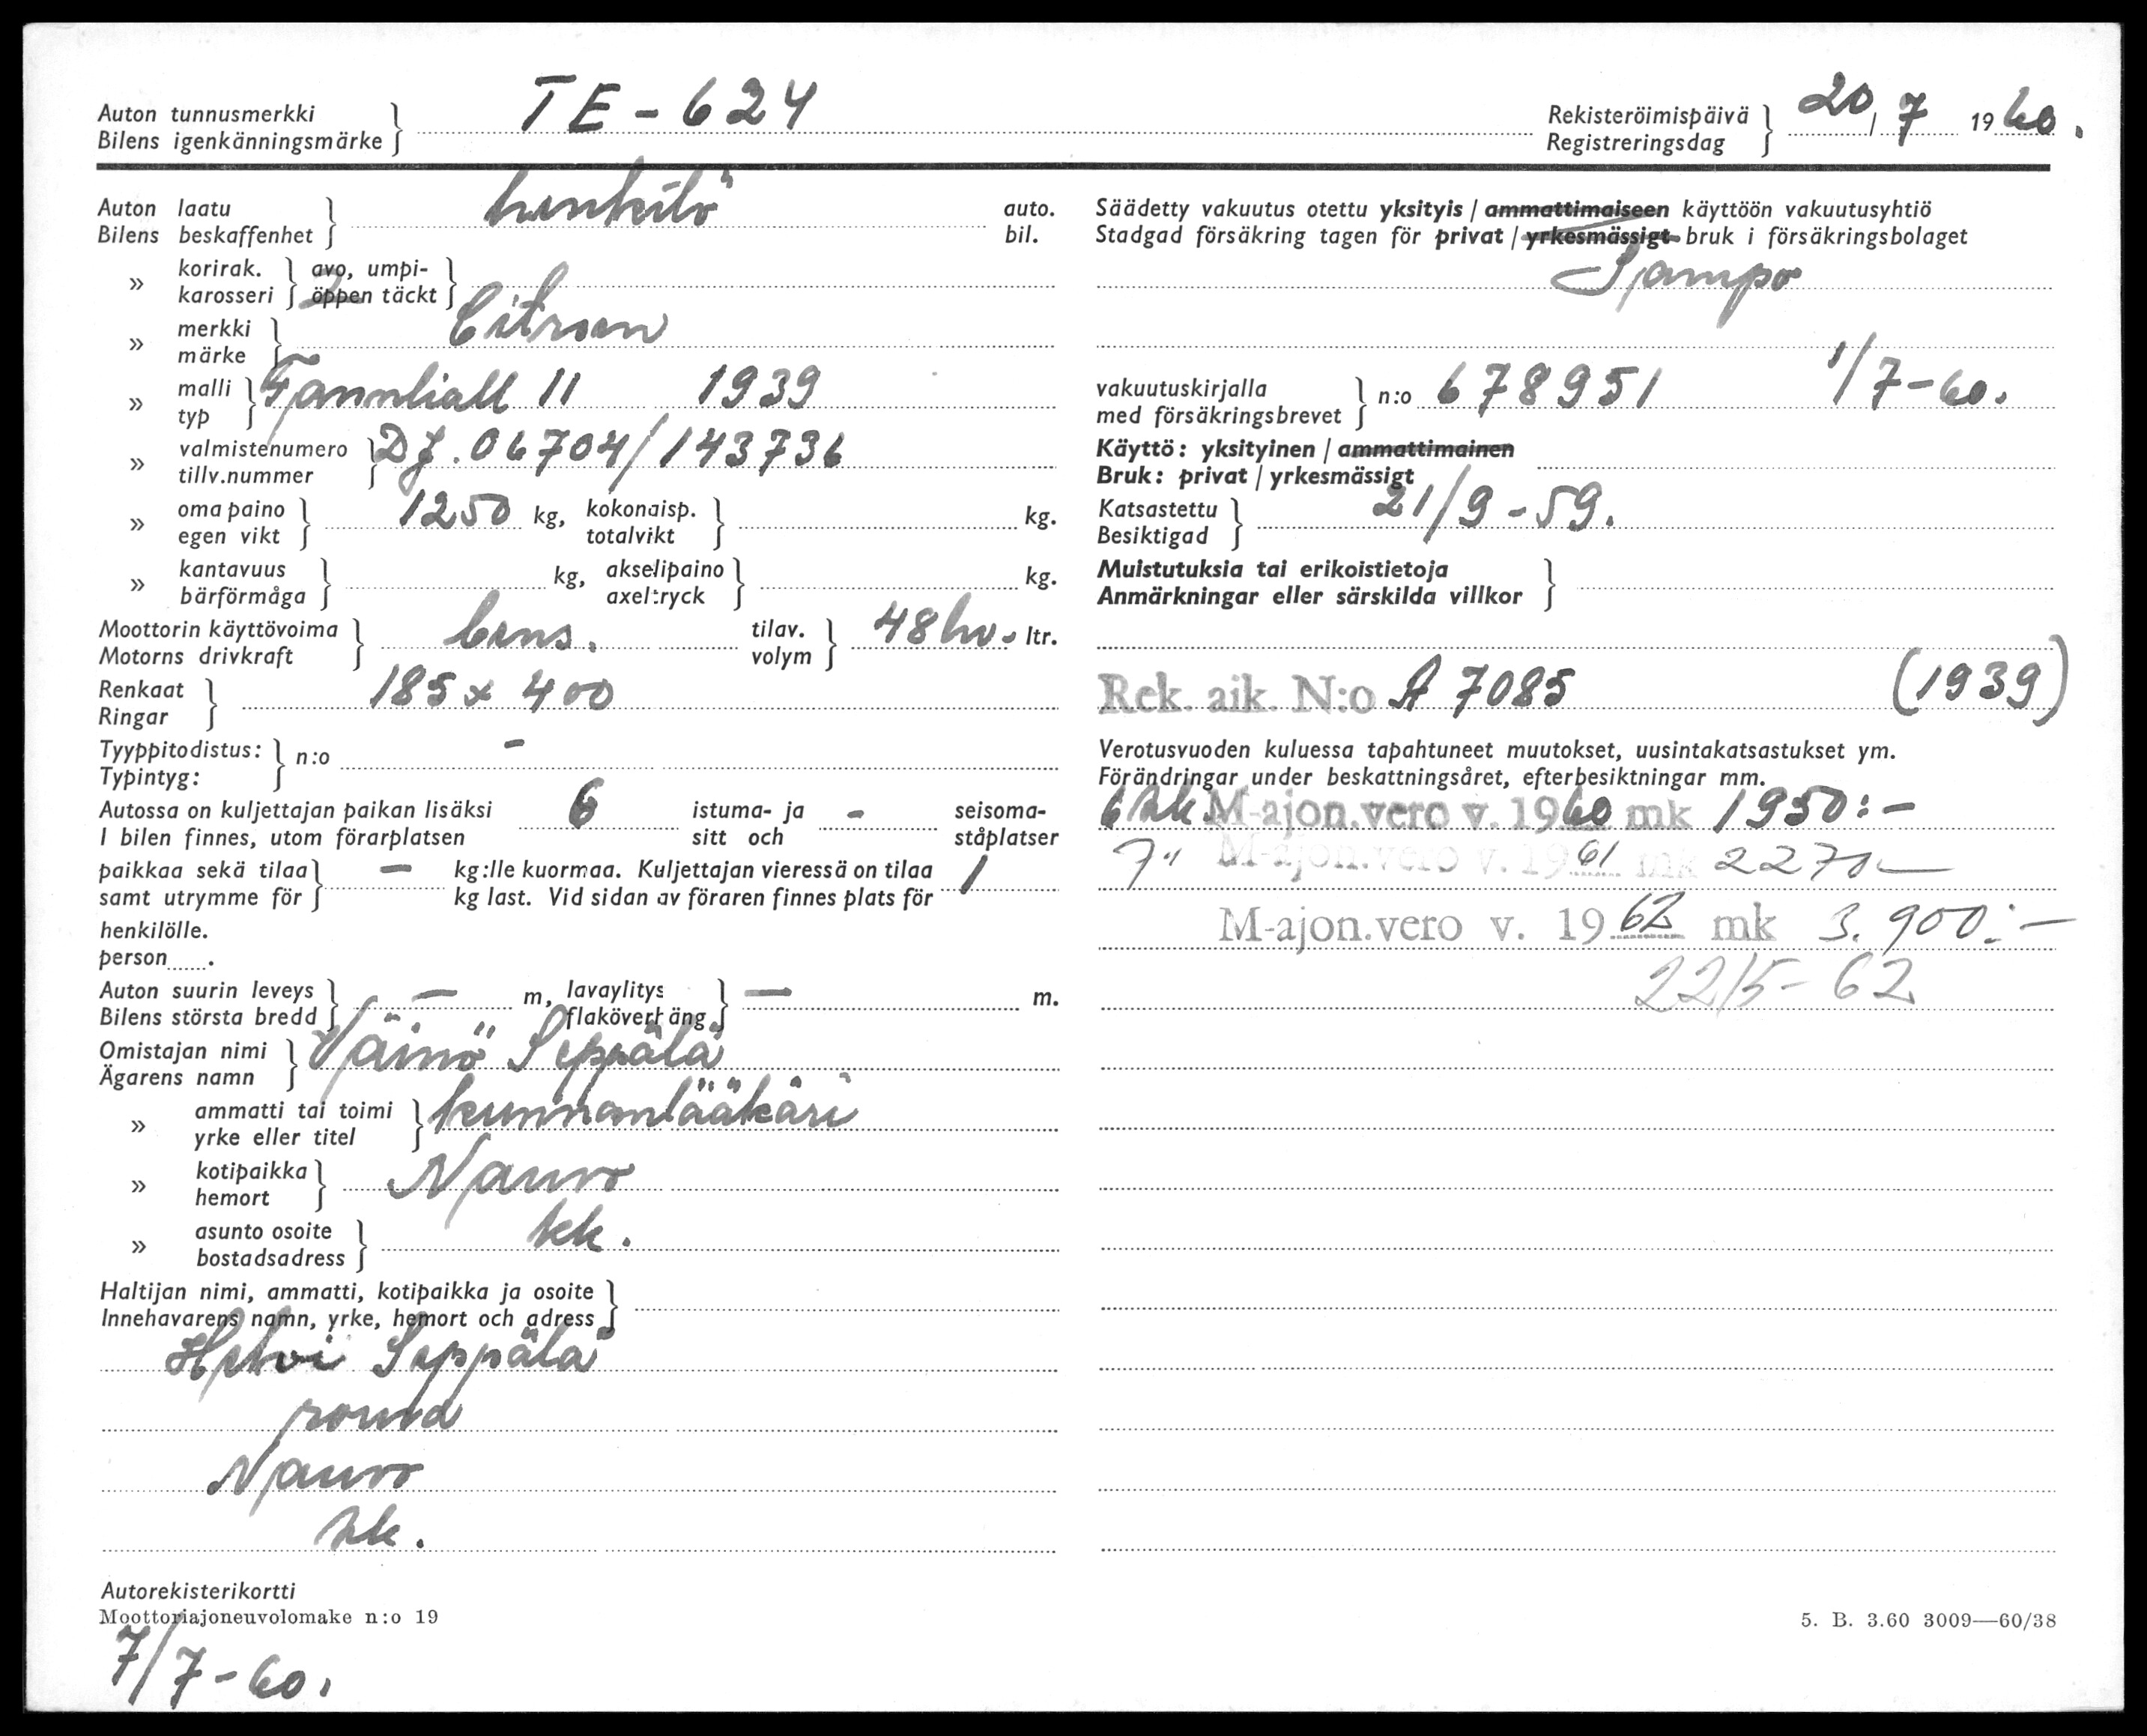 Auton tunnusmerkki
Bilens igenkänningsmärke
TE-624
Rekisteröimispäivä
Registreringsdag
20/7 1960.
Auton laatu
Bilens beskaffenhet
henkilö
auto.
bil.
» korirak. avo, umpi-
karosseri öppen täckt
» merkki
märke
Citroen
» malli
typ
11 1939
» valmistenumero
tillv.nummer
DJ.06704/143736
» oma paino
egen vikt
1250 kg, kokonaisp.
totalvikt
kg.
» kantavuus
bärförmåga
kg, akselipaino
axeltryck
kg.
Moottorin käyttövoima
Motorns drivkraft
bens.
tilav.
volym
48 hv. ltr.
Renkaat
Ringar
185 x 400
Tyyppitodistus:
Typintyg:
n:o -
Autossa on kuljettajan paikan lisäksi 6 istuma- ja - seisoma-
I bilen finnes, utom förarplatsen sitt och ståplatser
paikkaa sekä tilaa — kg:lle kuormaa. Kuljettajan vieressä on tilaa 1
samt utrymme för kg last. Vid sidan av föraren finnes plats för
henkilölle.
person.....
Auton suurin leveys
Bilens största bredd
— m, lavaylitys
flaköverhäng
— m.
Omistajan nimi
Ägarens namn
Väinö Seppälä
» ammatti tai toimi
yrke eller titel
kunnanlääkäri
» kotipaikka
hemort
Nauvo
» asunto osoite
bostadsadress
kk.
Haltijan nimi, ammatti, kotipaikka ja osoite
Innehavarens namn, yrke, hemort och adress
Seppälä
rouva
Nauvo
kk.
Autorekisterikortti
Moottoriajoneuvolomake n:o 19
7/7-60.
Säädetty vakuutus otettu yksityis / ammattimaiseen käyttöön vakuutusyhtiö
Stadgad försäkring tagen för privat / yrkesmässigt bruk i försäkringsbolaget
Sampo
vakuutuskirjalla
med försäkringsbrevet
n:o 678951 1/7-60.
Käyttö: yksityinen / ammattimainen
Bruk: privat / yrkesmässigt
Katsastettu
Besiktigad
21/9-59.
Muistutuksia tai erikoistietoja
Anmärkningar eller särskilda villkor
Rek. aik. N:o A 7085 (1939)
Verotusvuoden kuluessa tapahtuneet muutokset, uusintakatsastukset ym.
Förändringar under beskattningsåret, efterbesiktningar mm.
6 kk M-ajon.vero v. 1960 mk 1950:-
7" M-ajon.vero v. 1961 mk
M-ajon.vero v. 1962 mk 3.900:-
22/5-62
5. B. 3.60 3009—60/38